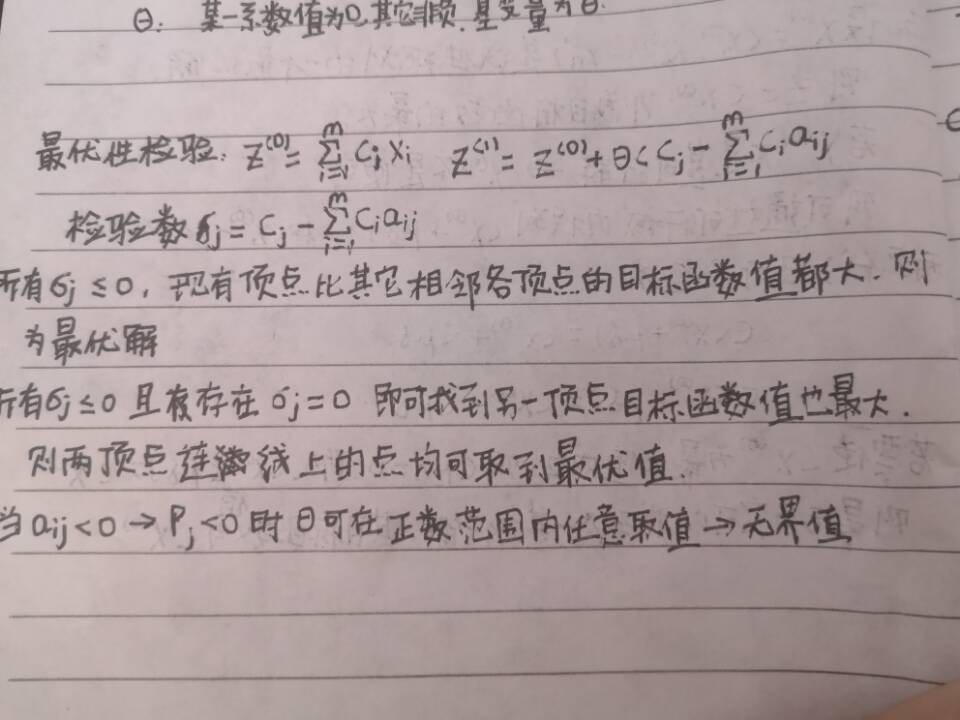 θ: 某一系数值为0,其它非负.是变量为θ.
最优性检验: Z⁽⁰⁾= Σᵢ₌₁ᵐ Cᵢ Xᵢ Z⁽¹⁾= Z⁽⁰⁾+ θ(Cⱼ - Σᵢ₌₁ᵐ Cᵢ aᵢⱼ
检验数 σⱼ = Cⱼ - Σᵢ₌₁ᵐ Cᵢ aᵢⱼ
所有 σⱼ ≤ 0, 现有顶点比其它相邻各顶点的目标函数值都大. 则
为最优解
所有 σⱼ ≤ 0 且存在 σⱼ = 0 即可找到另一顶点目标函数值也最大.
则两顶点连线上的点均可取到最优值.
当 aᵢⱼ < 0 → Pⱼ < 0 时 θ可在正数范围内任意取值 → 无界值